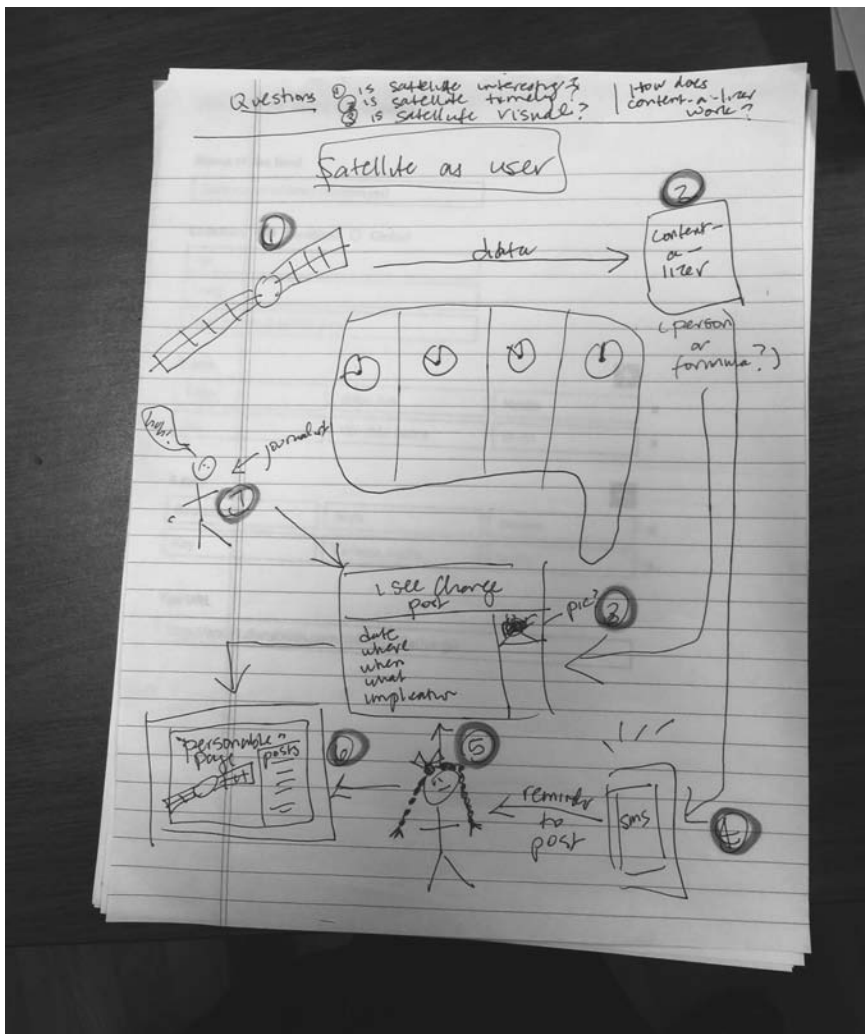 Questions ① is satellite interesting?
② is satellite timely?
③ is satellite visual?
How does
content-a-lizer
work?
Satellite as user
1
data
2
content-
a-
lizer
(person
or
formula?)
journalist
7
I see change
post
date
where
when
what
implication
pic?
3
"personable"
page
posts
6
5
reminder
to
post
sms
4